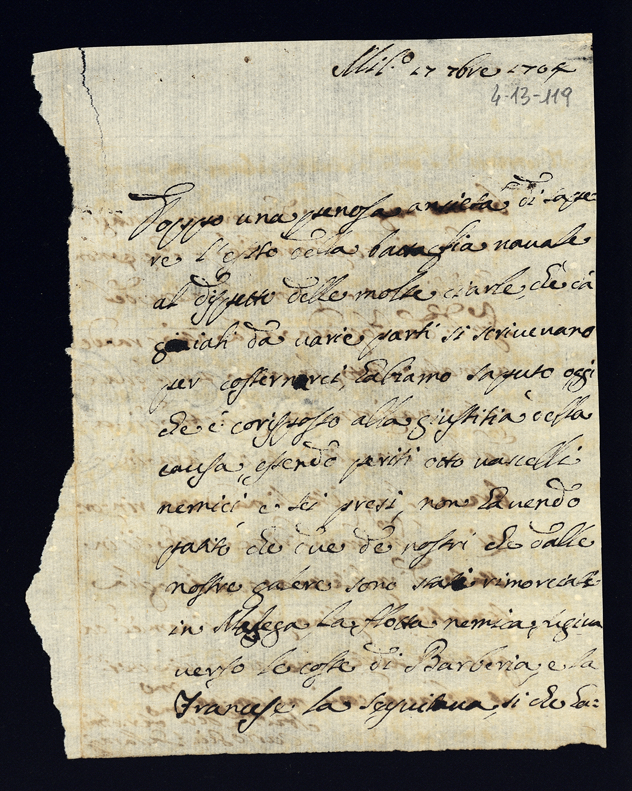 Mil.º 17 7bre 1704
4-13-119
Doppo una penosa ansietà di sape-
re l'esito della battaglia navale
al dispetto delle molte ciarle, che ca
da varie parti si scrivevano
per costernarci, habiamo saputo oggi
che è corrisposto alla giustitia della
causa, essendo periti otto vascelli
nemici e sei presi, non havendo
patito che due de nostri che dalle
nostre galere sono stati rimorciati
in Malega la flotta nemica
verso le coste di Barberia, e la
Francese la seguitava, si che ha=